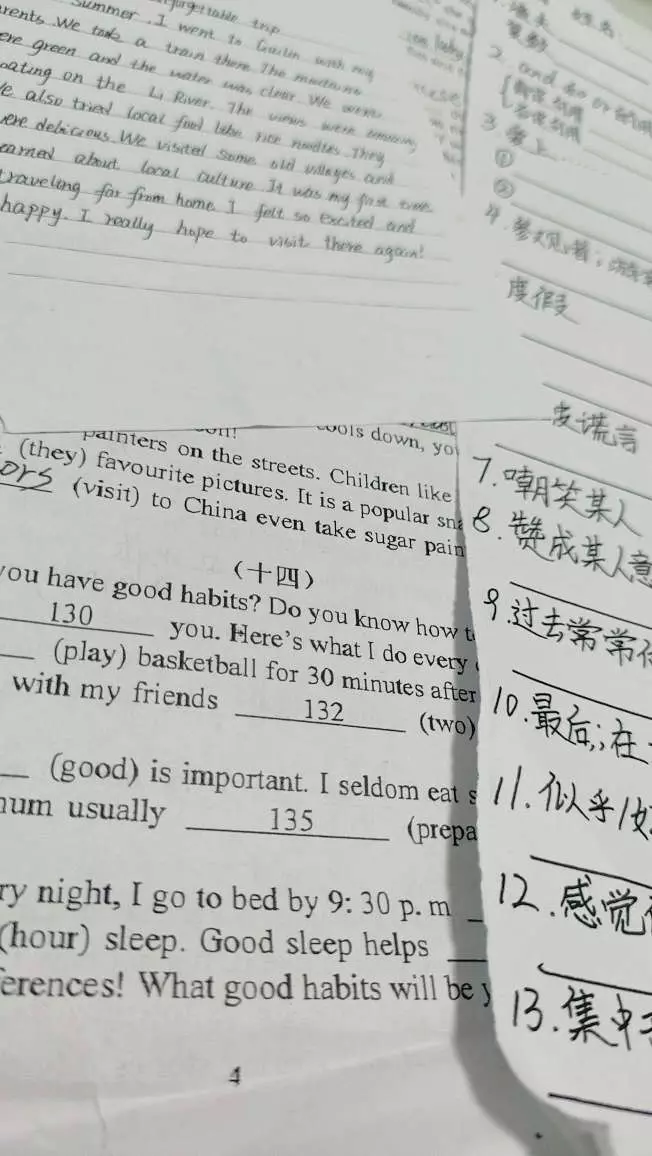 unforgettable trip
summer. I went to Guilin with my
parents. We took a train there. The mountains
were green and the water was clear. We went
boating on the Li River. The views were amazing,
We also tried local food like rice noodles. They
were delicious. We visited some old villages and
learned about local culture. It was my first time
traveling far from home. I felt so excited and
happy. I really hope to visit there again!
姓名:
2. and so or
3.
①
②
4. 参观
度假
谎言
painters on the streets. Children like
(they) favourite pictures. It is a popular
ors (visit) to China even take sugar
cools down,
(十四)
you have good habits? Do you know how
130 you. Here's what I do every
(play) basketball for 30 minutes after
with my friends 132 (two)
(good) is important. I seldom eat
usually 135
night, I go to bed by 9: 30 p. m
(hour) sleep. Good sleep helps
What good habits will be
4
7. 嘲笑某人
8. 赞成某人意
9. 过去常常
10. 最后;在
11. 似乎/好
12. 感觉
13. 集中